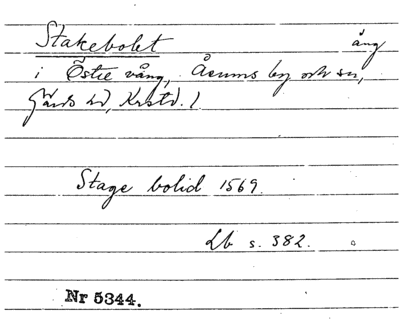 Stakebolet äng
i Östre vång, Åsums by och sn,
Gärds hd, Krstd. l
Stage bolid 1569.
Lb s. 382.
Nr 5344.